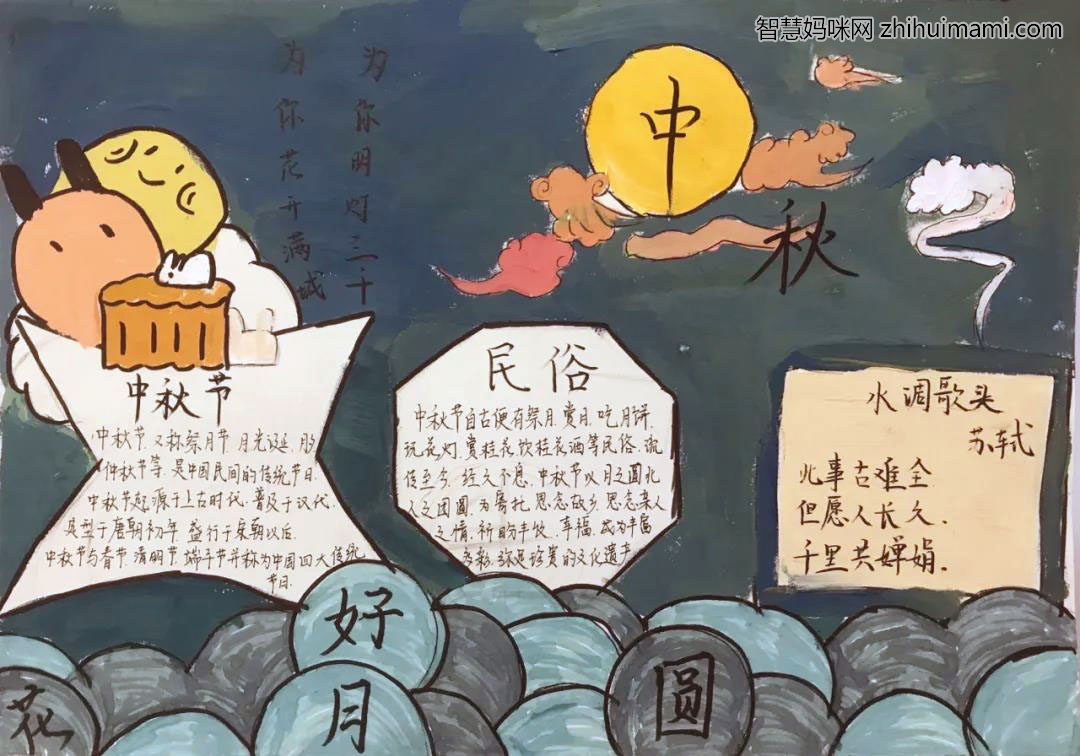 智慧妈咪网 zhihuimami.com
为你明灯三千
为你花开满城
中
秋
中秋节
中秋节又称祭月节、月光诞、月夕
仲秋节等,是中国民间的传统节日.
中秋节起源于上古时代,普及于汉代,
定型于唐朝初年,盛行于宋朝以后.
中秋节与春节、清明节、端午节并称为中国四大传统
节日.
民俗
中秋节自古便有祭月、赏月、吃月饼、
玩花灯、赏桂花、饮桂花酒等民俗,流
传至今,经久不息.中秋节以月之圆兆
人之团圆,为寄托思念故乡,思念亲人
之情,祈盼丰收、幸福,成为丰富
多彩、弥足珍贵的文化遗产
水调歌头
苏轼
此事古难全
但愿人长久.
千里共婵娟.
花
好
月
圆